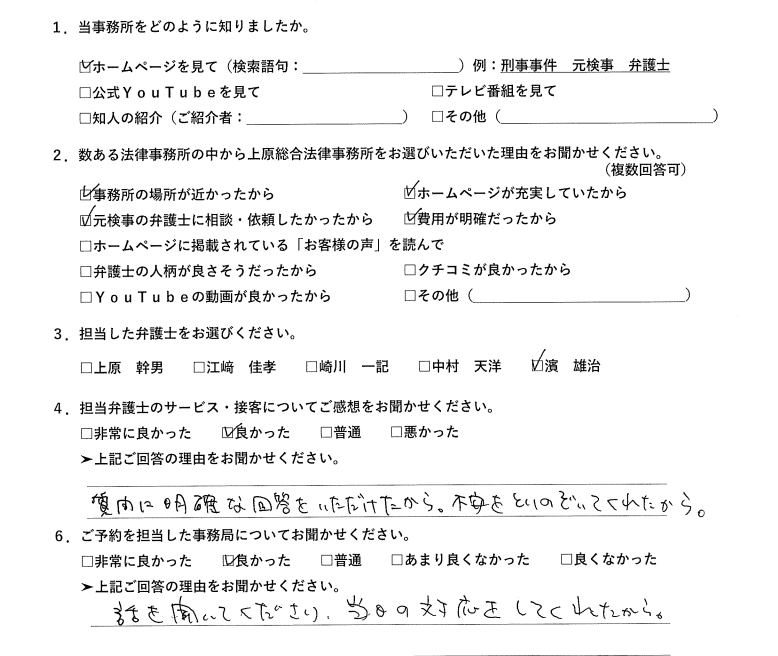 1．当事務所をどのように知りましたか。
☑ホームページを見て（検索語句：＿＿＿＿＿＿＿＿＿＿）例：刑事事件　元検事　弁護士
□公式ＹｏｕＴｕｂｅを見て　□テレビ番組を見て
□知人の紹介（ご紹介者：＿＿＿＿＿＿＿＿＿＿）　□その他（＿＿＿＿＿＿＿＿＿＿）
2．数ある法律事務所の中から上原総合法律事務所をお選びいただいた理由をお聞かせください。
（複数回答可）
☑事務所の場所が近かったから　☑ホームページが充実していたから
☑元検事の弁護士に相談・依頼したかったから　☑費用が明確だったから
□ホームページに掲載されている「お客様の声」を読んで
□弁護士の人柄が良さそうだったから　□クチコミが良かったから
□ＹｏｕＴｕｂｅの動画が良かったから　□その他（＿＿＿＿＿＿＿＿＿＿）
3．担当した弁護士をお選びください。
□上原　幹男　□江﨑　佳孝　□崎川　一記　□中村　天洋　☑濱　雄治
4．担当弁護士のサービス・接客についてご感想をお聞かせください。
□非常に良かった　☑良かった　□普通　□悪かった
➤上記ご回答の理由をお聞かせください。
質問に明確な回答をいただけたから。不安をといのぞいてくれたから。
6．ご予約を担当した事務局についてお聞かせください。
□非常に良かった　☑良かった　□普通　□あまり良くなかった　□良くなかった
➤上記ご回答の理由をお聞かせください。
話を聞いてくださり、当日の対応をしてくれたから。